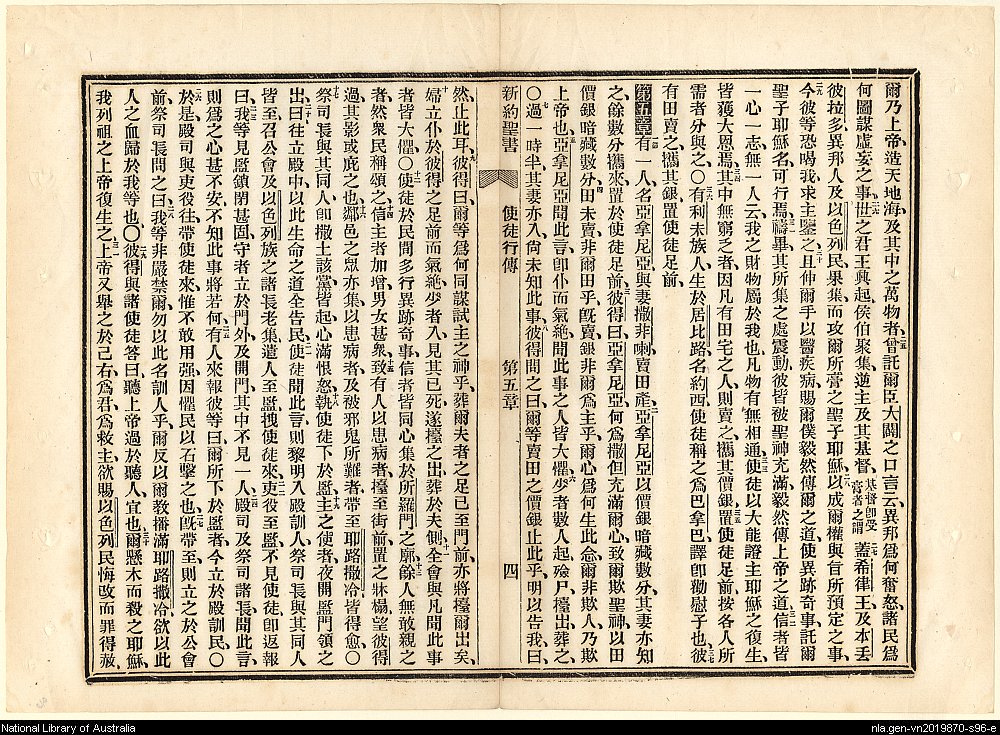 爾乃上帝、造天地海、及其中之萬物者、二五曾託爾臣大闢之口言云、異邦爲何奮怒、諸民爲
何圖謀虛妄之事、二六世之君王興起、侯伯聚集、逆主及其基督、基督卽受膏者之謂二七蓋希律王、及本丟
彼拉多、異邦人及以色列民、果集而攻爾所膏之聖子耶穌、二八以成爾權與旨所預定之事、
二九今彼等恐喝我、求主鑒之、三十且伸爾手以醫疾病、賜爾僕毅然傳爾之道、使異跡奇事、託爾
聖子耶穌名可行焉、三一禱畢、其所集之處震動、彼皆被聖神充滿、毅然傳上帝之道、三二信者皆
一心一志、無一人云、我之財物屬於我也、凡物有無相通、三三使徒以大能證主耶穌之復生、
皆獲大恩焉、三四其中無窮乏者、因凡有田宅之人、則賣之、攜其價銀、三五置使徒足前、按各人所
需者分與之、〇三六有利未族人、生於居比路、名約西、使徒稱之爲巴拿巴、譯卽勸慰子也、三七彼
有田賣之、攜其銀、置使徒足前、
第五章一有一人、名亞拿尼亞、與妻撒非喇賣田產、二亞拿尼亞以價銀暗藏數分、其妻亦知
之、餘數分攜來置於使徒足前、三彼得曰、亞拿尼亞、何爲撒但充滿爾心、致爾欺聖神、以田
價銀暗藏數分、四田未賣、非爾田乎、旣賣、銀非爾爲主乎、爾心爲何生此念、爾非欺人、乃欺
上帝也、五亞拿尼亞聞此言、卽仆而氣絶、聞此事之人皆大懼、六少者數人起、殮尸檯出葬之、
〇七過一時半、其妻亦入、尙未知此事、八彼得問之曰、爾等賣田之價銀止此乎、明以告我、曰、
新約聖書　使徒行傳　第五章　四
然、止此耳、九彼得曰、爾等爲何同謀試主之神乎、葬爾夫者之足、已至門前、亦將檯爾出矣、
十婦立仆於彼得之足前而氣絶、少者入見其已死、遂檯之出、葬於夫側、十一全會與凡聞此事
者、皆大懼、〇十二使徒於民間多行異跡奇事、信者皆同心集於所羅門之廓、十三餘人無敢親之
者、然衆民稱頌之、十四信主者加增、男女甚衆、十五致有人以患病者、檯至街前、置之牀榻、望彼得
過、其影或庇之也、十六鄰邑之眾亦集、以患病者、及被邪鬼所難者、帶至耶路撒冷、皆得愈、〇
十七祭司長與其同人、卽撒土該黨、皆起、心滿恨怒、十八執使徒下於監、十九主之使者夜開監門、領之
出、曰、二十往立殿中、以此生命之道、全告民、二一使徒聞此言、則黎明入殿訓人、祭司長與其同人
皆至、召公會及以色列族之諸長老集、遣人至監、拽使徒來、二二吏役至監、不見使徒、卽返報
曰、二三我等見監鎖閉甚固、守者立於門外、及開門、其中不見一人、二四殿司及祭司諸長聞此言、
則爲之心甚不安、不知此事將若何、二五有人來報彼等曰、爾所下於監者、今立於殿訓民、〇
二六於是殿司與吏役往、帶使徒來、惟不敢用强、因懼民以石擊之也、二七旣帶至、則立之於公會
前、祭司長問之曰、二八我等非嚴禁爾勿以此名訓人乎、爾反以爾教播滿耶路撒冷、欲以此
人之血歸於我等也、〇二九彼得與諸使徒答曰、聽上帝過於聽人、宜也、三十爾懸木而殺之耶穌、
我列祖之上帝復生之、三一上帝又舉之於己右、爲君、爲救主、欲賜以色列民悔改、而罪得赦、
National Library of Australia
nla.gen-vn2019870-s96-e